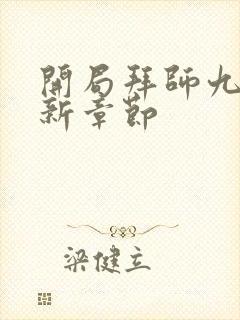 開局拜師九
新章節
梁健立